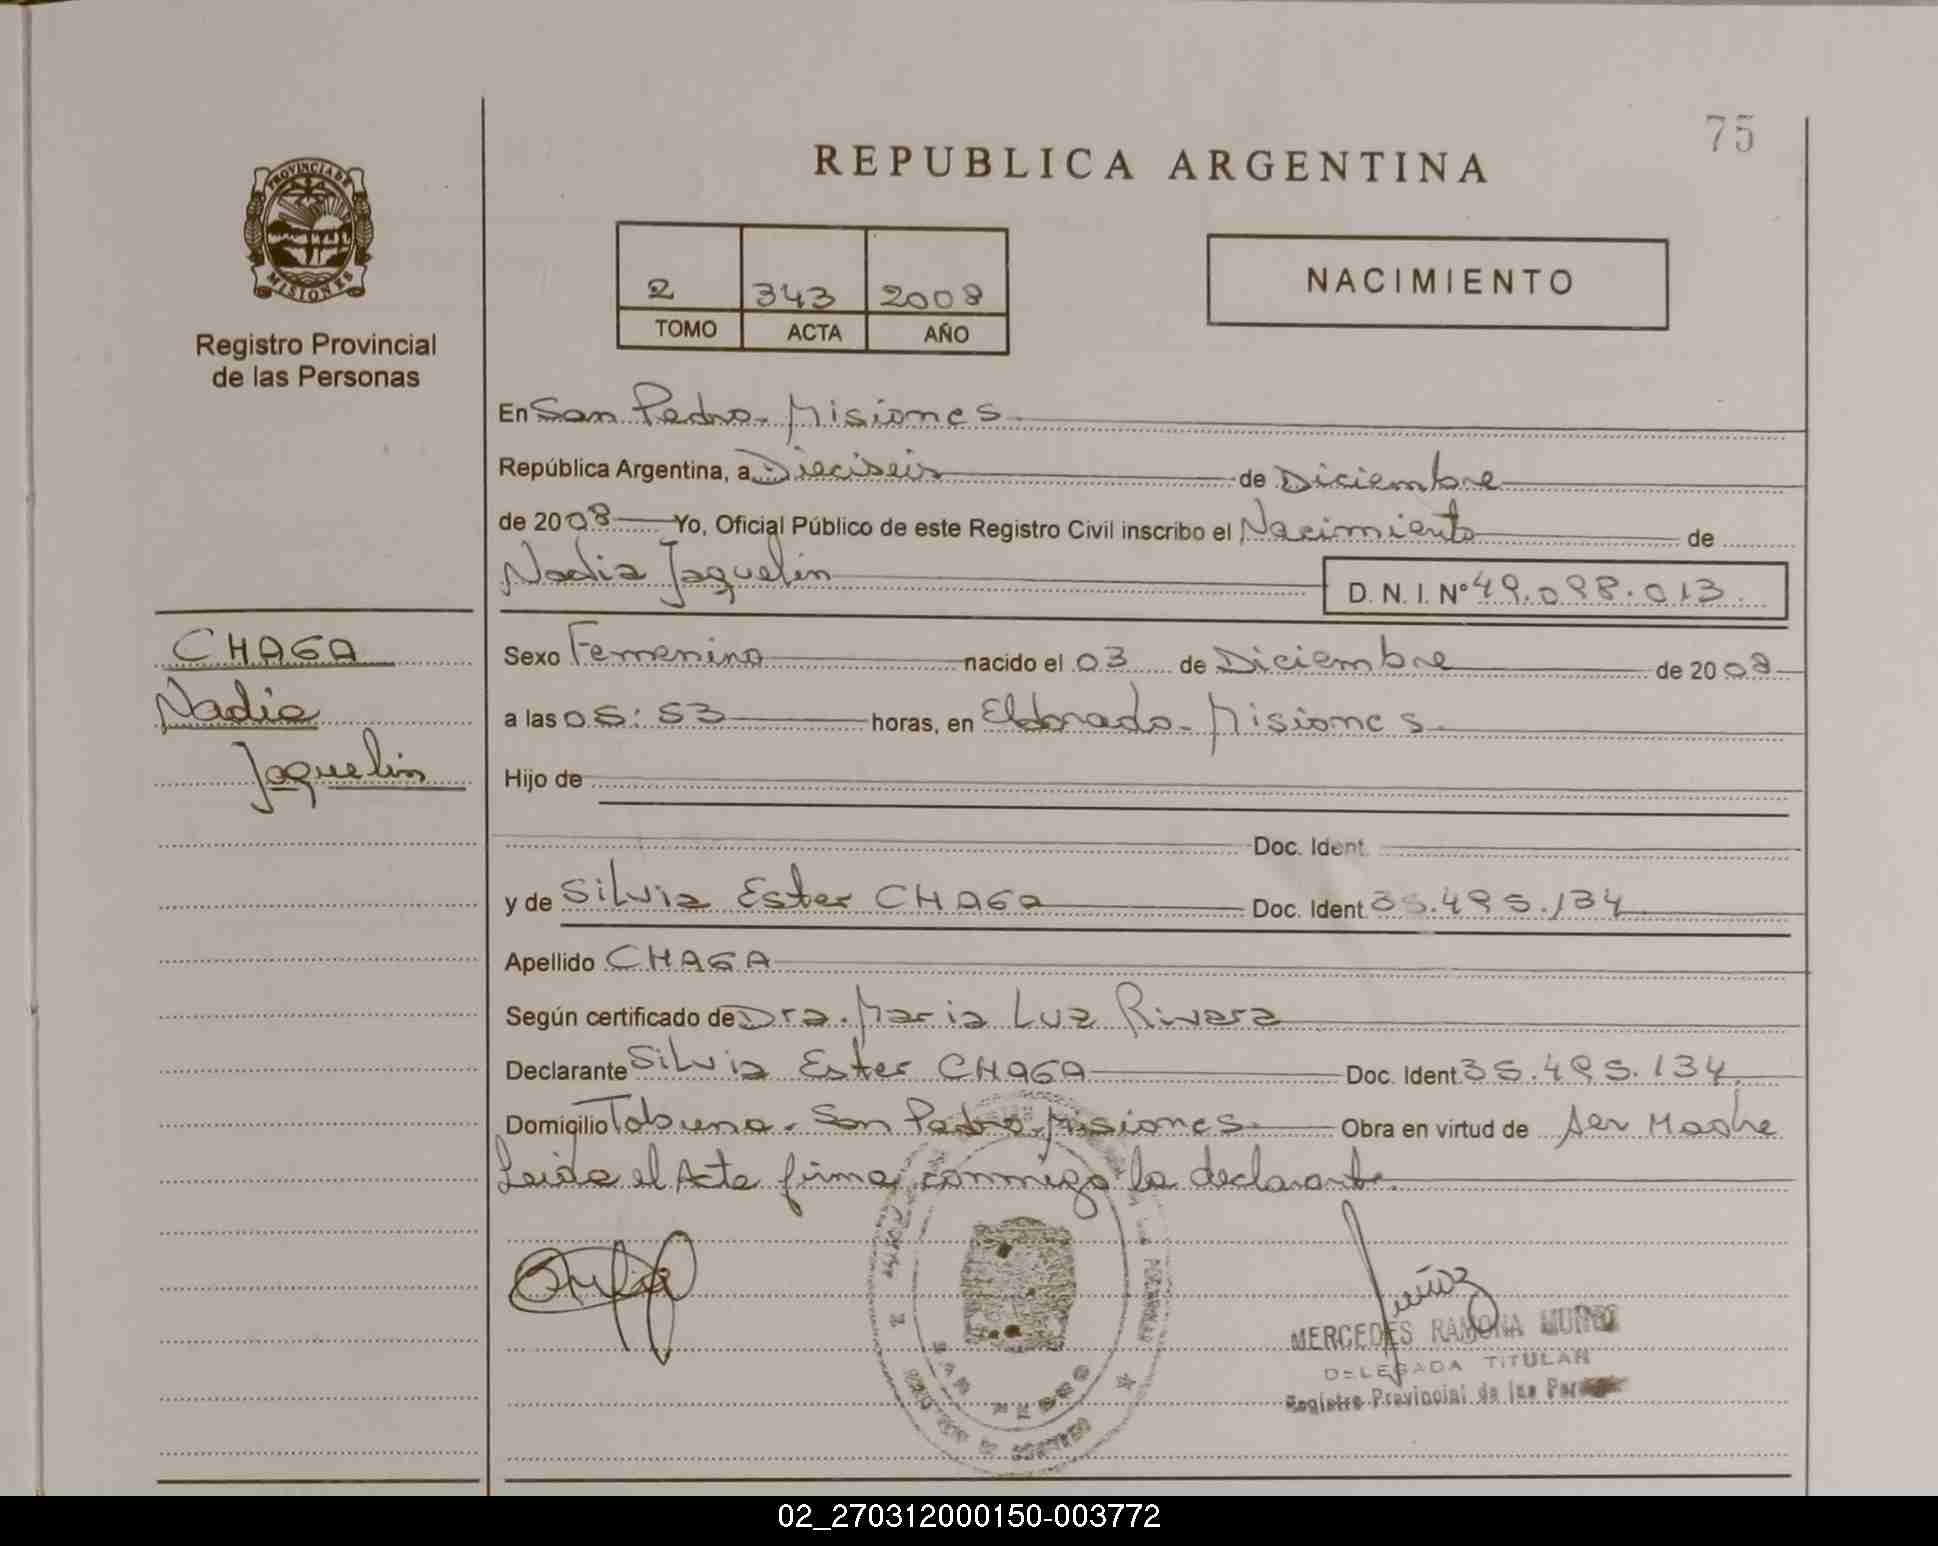 75
REPUBLICA ARGENTINA
PROVINCIA DE
MISIONES
Registro Provincial
de las Personas
2 343 2008
TOMO ACTA AÑO
NACIMIENTO
En San Pedro - Misiones
República Argentina, a Dieciseis de Diciembre
de 2008 Yo, Oficial Público de este Registro Civil inscribo el Nacimiento de
Nadia Jaquelin D. N. I. Nº 49.098.013
CHAGA
Nadia
Jaquelin
Sexo Femenino nacido el 03 de Diciembre de 2008
a las 05:53 horas, en Eldorado - Misiones
Hijo de
Doc. Ident.
y de Silvia Ester CHAGA Doc. Ident 35.495.134
Apellido CHAGA
Según certificado de Dra. Maria Luz Rivera
Declarante Silvia Ester CHAGA Doc. Ident. 35.495.134
Domicilio Tobuna - San Pedro - Misiones Obra en virtud de ser Madre
Leida el Acta firma conmigo la declarante.
MERCEDES RAMONA
DELEGADA TITULAR
Registro Provincial de las
02_270312000150-003772